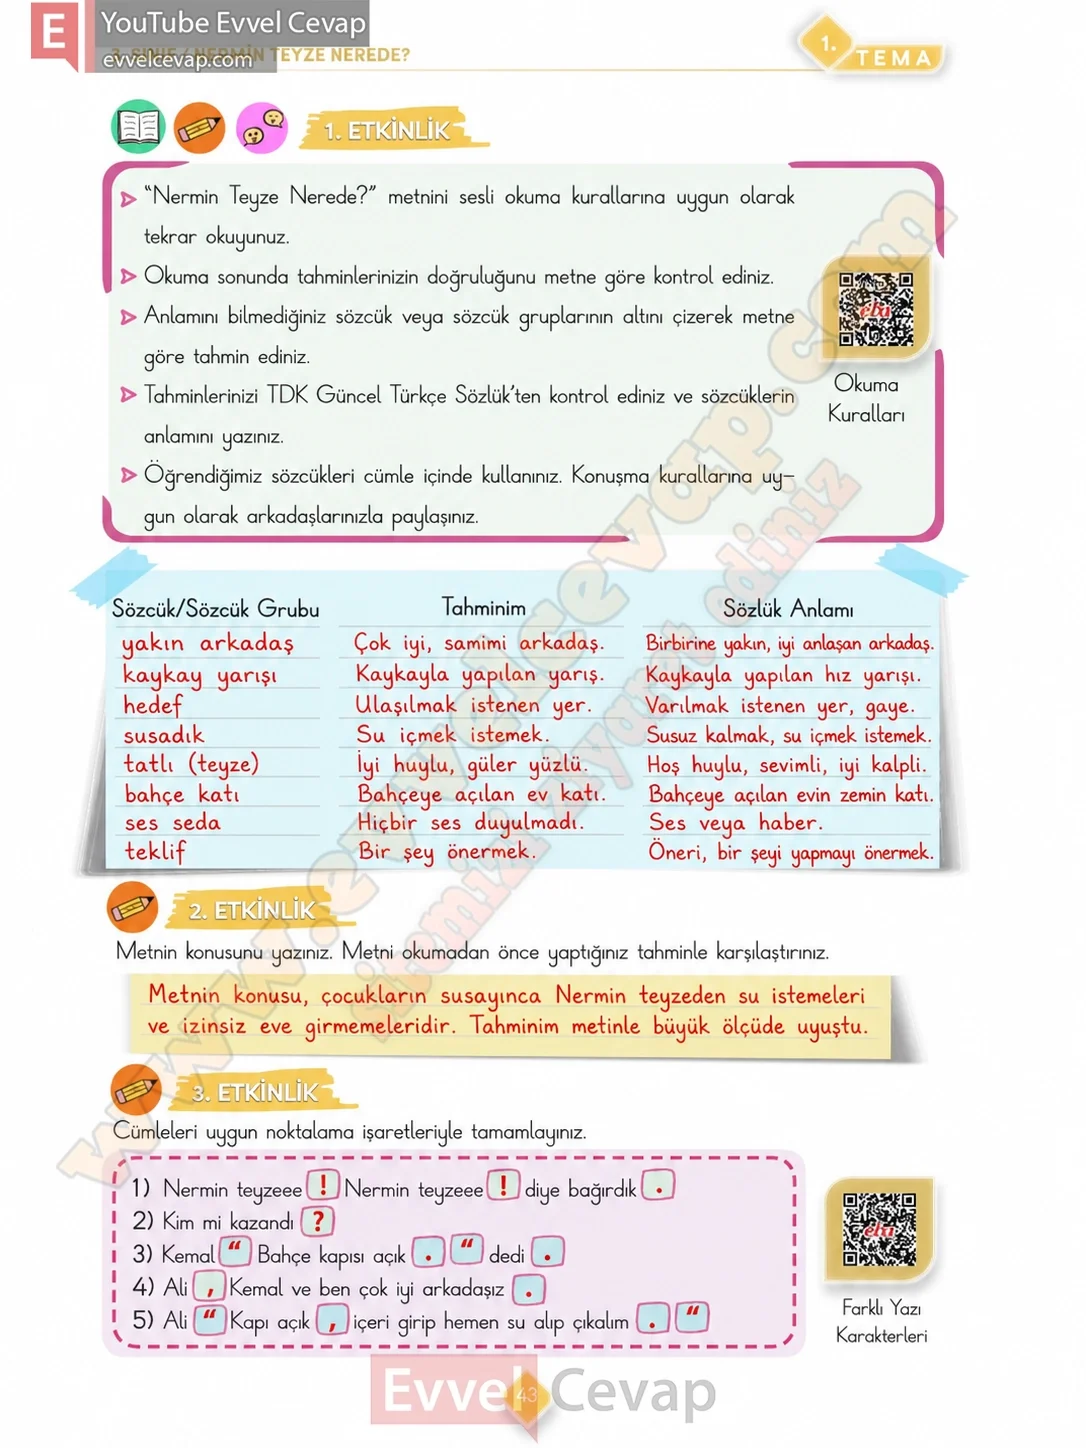 E YouTube Evvel Cevap
evvelcevap.com
3. SINIF / NERMİN TEYZE NEREDE?
1. TEMA
1. ETKİNLİK
"Nermin Teyze Nerede?" metnini sesli okuma kurallarına uygun olarak
tekrar okuyunuz.
Okuma sonunda tahminlerinizin doğruluğunu metne göre kontrol ediniz.
Anlamını bilmediğiniz sözcük veya sözcük gruplarının altını çizerek metne
göre tahmin ediniz.
Tahminlerinizi TDK Güncel Türkçe Sözlük'ten kontrol ediniz ve sözcüklerin
anlamını yazınız.
Öğrendiğimiz sözcükleri cümle içinde kullanınız. Konuşma kurallarına uy-
gun olarak arkadaşlarınızla paylaşınız.
eba
Okuma
Kuralları
Sözcük/Sözcük Grubu Tahminim Sözlük Anlamı
yakın arkadaş Çok iyi, samimi arkadaş. Birbirine yakın, iyi anlaşan arkadaş.
kaykay yarışı Kaykayla yapılan yarış. Kaykayla yapılan hız yarışı.
hedef Ulaşılmak istenen yer. Varılmak istenen yer, gaye.
susadık Su içmek istemek. Susuz kalmak, su içmek istemek.
tatlı (teyze) İyi huylu, güler yüzlü. Hoş huylu, sevimli, iyi kalpli.
bahçe katı Bahçeye açılan ev katı. Bahçeye açılan evin zemin katı.
ses seda Hiçbir ses duyulmadı. Ses veya haber.
teklif Bir şey önermek. Öneri, bir şeyi yapmayı önermek.
2. ETKİNLİK
Metnin konusunu yazınız. Metni okumadan önce yaptığınız tahminle karşılaştırınız.
Metnin konusu, çocukların susayınca Nermin teyzeden su istemeleri
ve izinsiz eve girmemeleridir. Tahminim metinle büyük ölçüde uyuştu.
3. ETKİNLİK
Cümleleri uygun noktalama işaretleriyle tamamlayınız.
1) Nermin teyzeee ! Nermin teyzeee ! diye bağırdık .
2) Kim mi kazandı ?
3) Kemal “ Bahçe kapısı açık . “ dedi .
4) Ali , Kemal ve ben çok iyi arkadaşız .
5) Ali “ Kapı açık , içeri girip hemen su alıp çıkalım . “
eba
Farklı Yazı
Karakterleri
www.evvelcevap.com
sitemizi ziyaret ediniz
Evvel Cevap
43